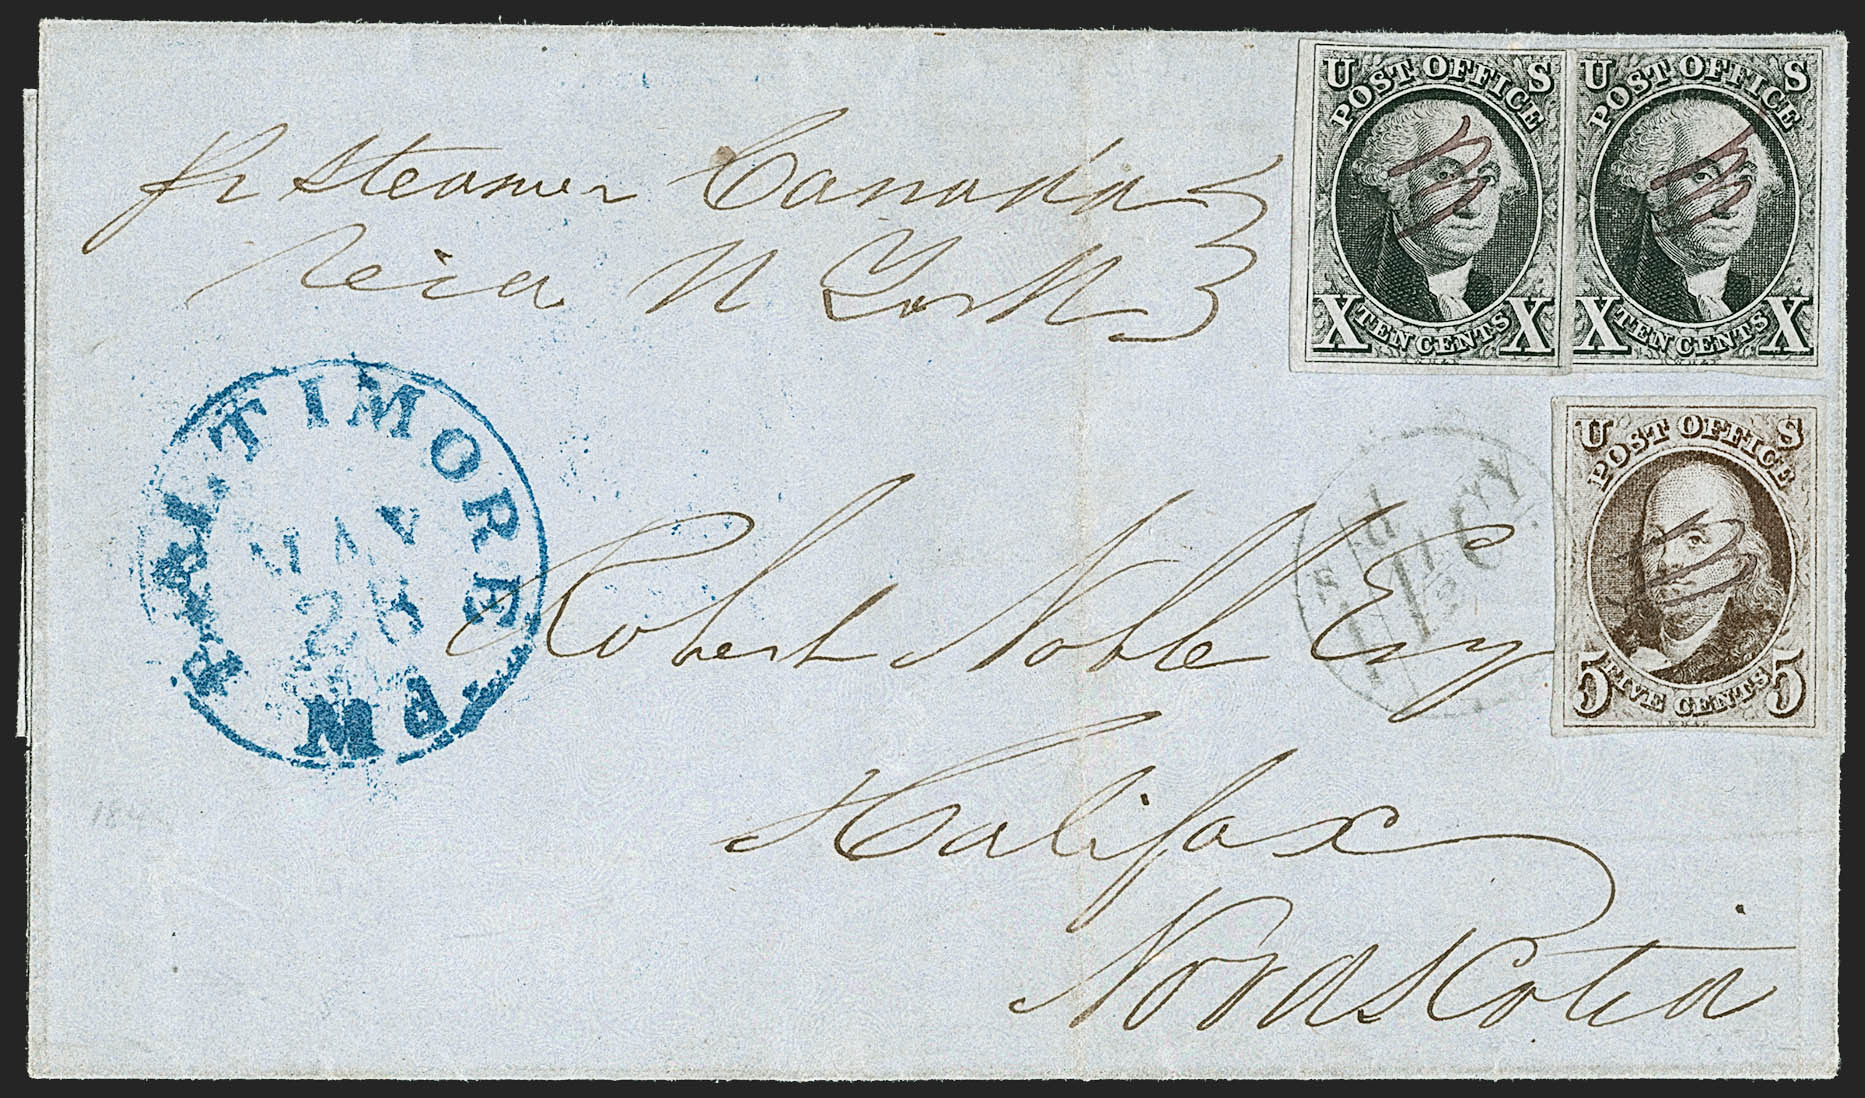 pr Steamer Canada
Via N York
U S
POST OFFICE
X TEN CENTS X
U S
POST OFFICE
X TEN CENTS X
BALTIMORE Md.
MAY
25
U S
POST OFFICE
5 FIVE CENTS 5
Robert Noble Esq
Halifax
Nova Scotia